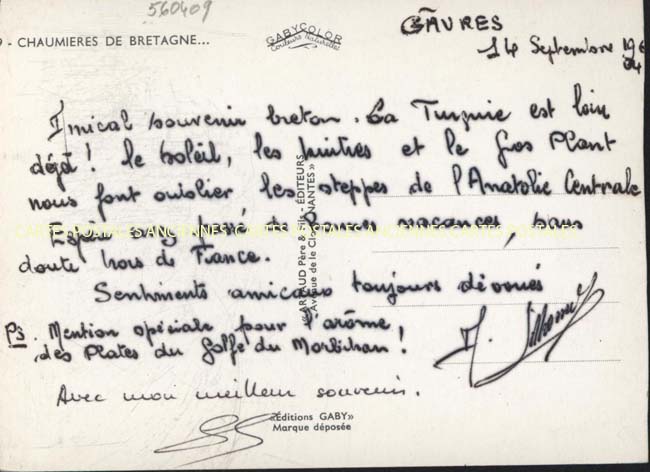 560409
9 - CHAUMIERES DE BRETAGNE...
GABYCOLOR
Couleurs Naturelles
GÂVRES
14 Septembre 196
64
Amical souvenir breton. La Turquie est loin
déjà ! le soleil, les huitres et le Gros Plant
nous font oublier les steppes de l'Anatolie Centrale
Espère avez passé de bonnes vacances, sans
doute hors de France.
Sentiments amicaux toujours dévoués
PS. Mention spéciale pour l'arôme,
des Plates du Golfe du Morbihan !
Avec mon meilleur souvenir.
«ARTAUD Père & Fils - ÉDITEURS
NANTES»
CARTES POSTALES ANCIENNES CARTES POSTALES ANCIENNES CARTES POSTALES
«Éditions GABY»
Marque déposée